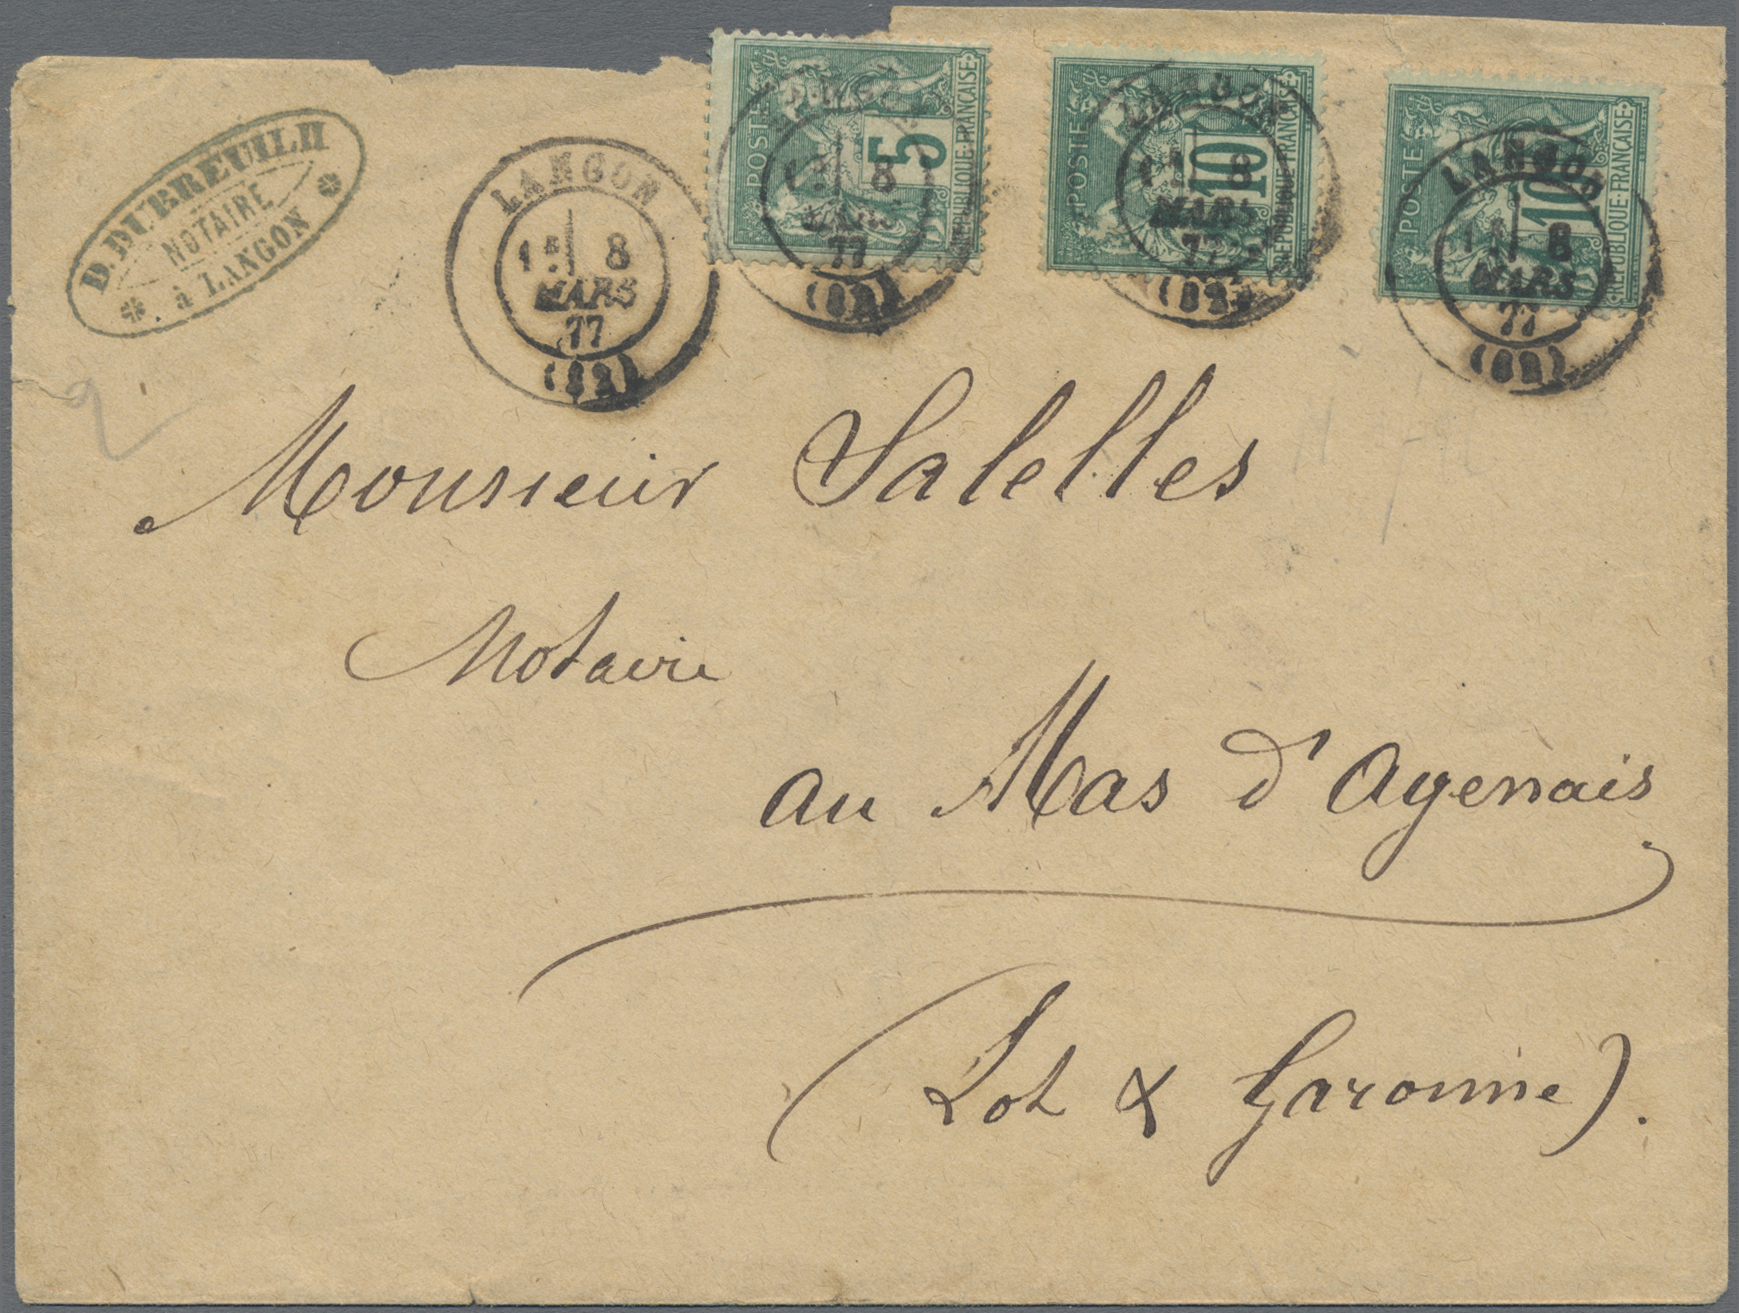 D. DUBREUILH
NOTAIRE
à LANGON
LANGON
1E 8
MARS
77
(32)
POSTE
5
REPUBLIQUE·FRANÇAISE
8
MARS
77
(32)
POSTE
10
REPUBLIQUE·FRANÇAISE
LANGON
1E 8
MARS
77
(32)
POSTE
10
REPUBLIQUE·FRANÇAISE
LANGON
1E 8
MARS
77
(32)
2
Monsieur Salelles
Notaire
au Mas d'Agenais
(Lot & Garonne).